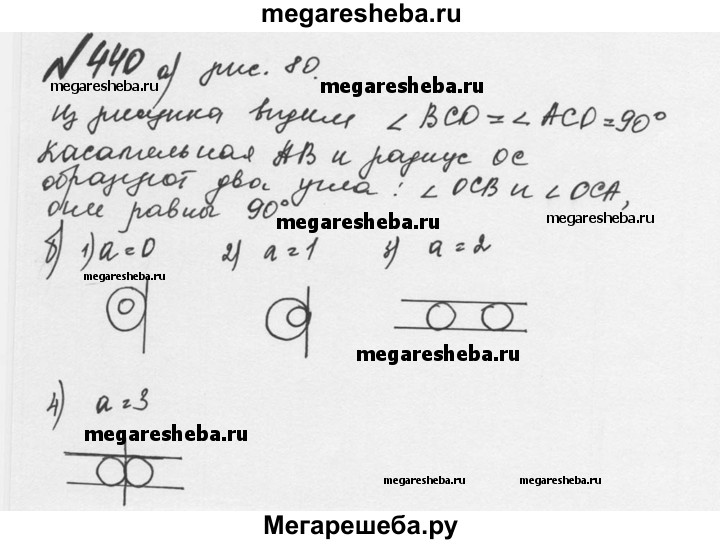 megaresheba.ru
№440 а) рис. 80.
megaresheba.ru
megaresheba.ru
Из рисунка видим ∠BCO=∠ACO=90°
Касательная AB и радиус OC
образуют два угла: ∠OCB и ∠OCA,
они равны 90°
megaresheba.ru
megaresheba.ru
б) 1) a=0 2) a=1 3) a=2
megaresheba.ru
megaresheba.ru
4) a=3
megaresheba.ru
megaresheba.ru megaresheba.ru
Мегарешеба.ру